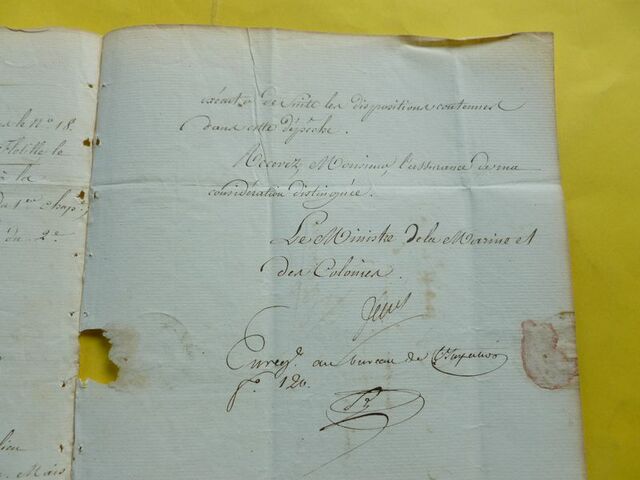 es le N.º 18.
le
à la
du 1.er Chap.
du 2.e
lieu
Mars
exécuter de suite les dispositions contenues
dans cette dépêche.
Recevez, Monsieur, l'assurance de ma
considération distinguée.
Le Ministre de la Marine et
des Colonies.
Enreg.é au bureau de
f.o 120.